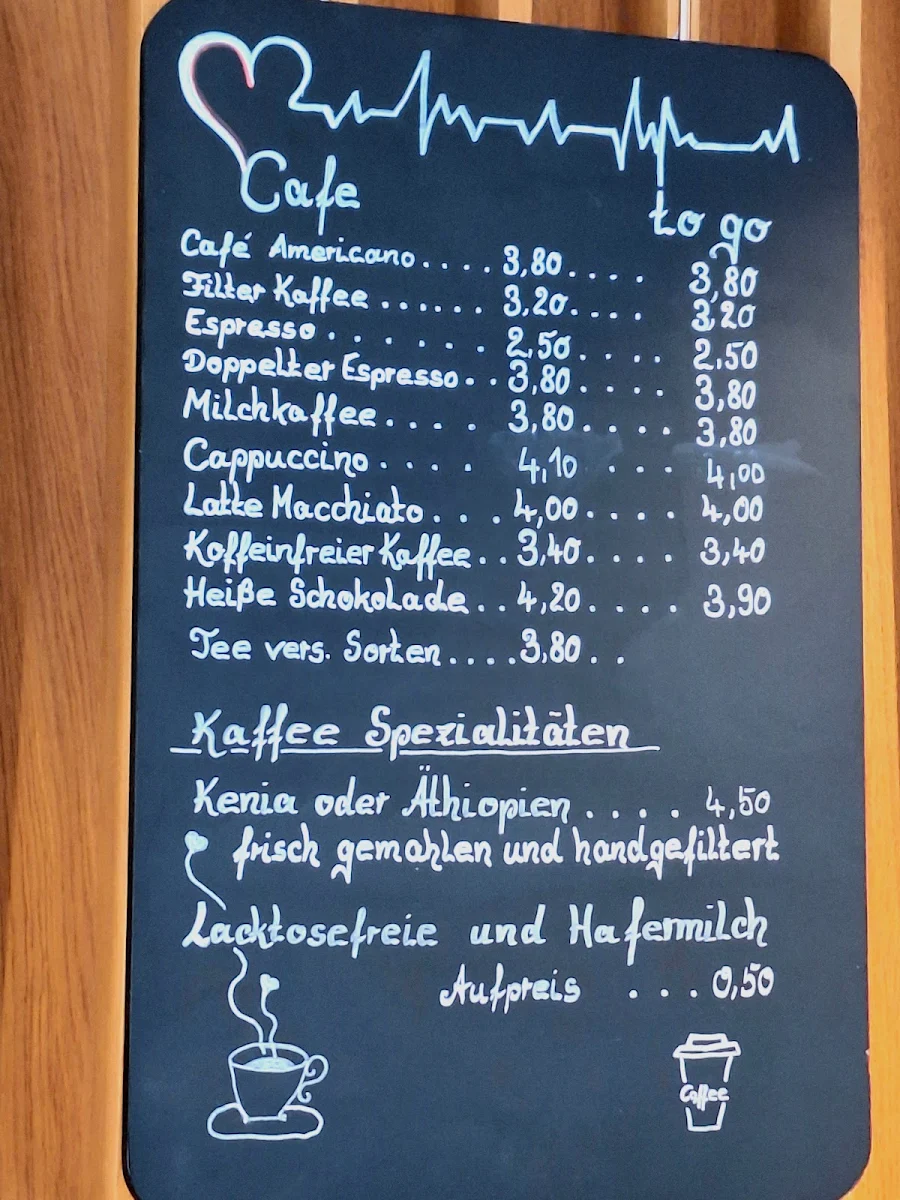 Cafe to go
Café Americano.... 3,80.... 3,80
Filter Kaffee...... 3,20.... 3,20
Espresso....... 2,50.... 2,50
Doppelter Espresso.. 3,80.... 3,80
Milchkaffee.... 3,80.... 3,80
Cappuccino.... 4,10 ... 4,00
Latte Macchiato... 4,00.... 4,00
Koffeinfreier Kaffee.. 3,40.... 3,40
Heiße Schokolade.. 4,20.... 3,90
Tee vers. Sorten.... 3,80..
Kaffee Spezialitäten
Kenia oder Äthiopien.... 4,50
frisch gemahlen und handgefiltert
Lacktosefreie und Hafermilch
Aufpreis ... 0,50
Coffee